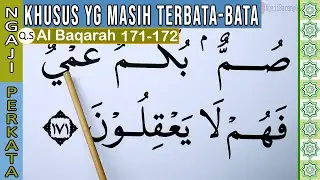 KHUSUS YG MASIH TERBATA-BATA
Q.S Al Baqarah 171-172
NGAJI PERKATA
صُمٌّۢ بُكْمٌ عُمْيٌ
فَهُمْ لَا يَعْقِلُوْنَ ١٧١